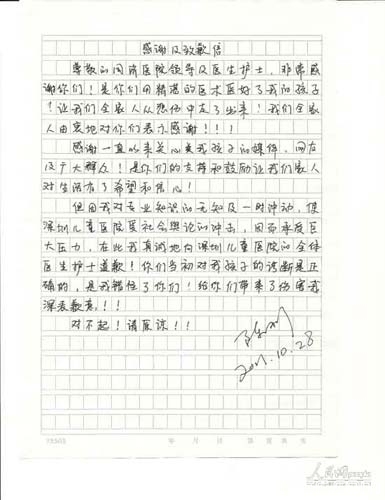 感谢及致歉信
尊敬的同济医院领导及医生护士，非常感
谢你们！是你们用精湛的医术医好了我的孩子
！让我们全家人从恐惧中走了出来！我们全家
人由衷地对你们表示感谢！！！
感谢一直以来关心支我孩子的媒体，网友
及广大群众！是你们的支持和鼓励让我们家人
对生活有了希望和信心！
但因我对专业知识的无知及一时冲动，使
深圳儿童医院受社会舆论的冲击，因而承受巨
大压力，在此我真诚地向深圳儿童医院的全体
医生护士道歉！你们当初对我孩子的诊断是正
确的，是我错怪了你们！给你们带来了伤害我
深表歉意！！
对不起！请原谅！！
2011.10.28
年 月 日 第 页 共 页
人民网